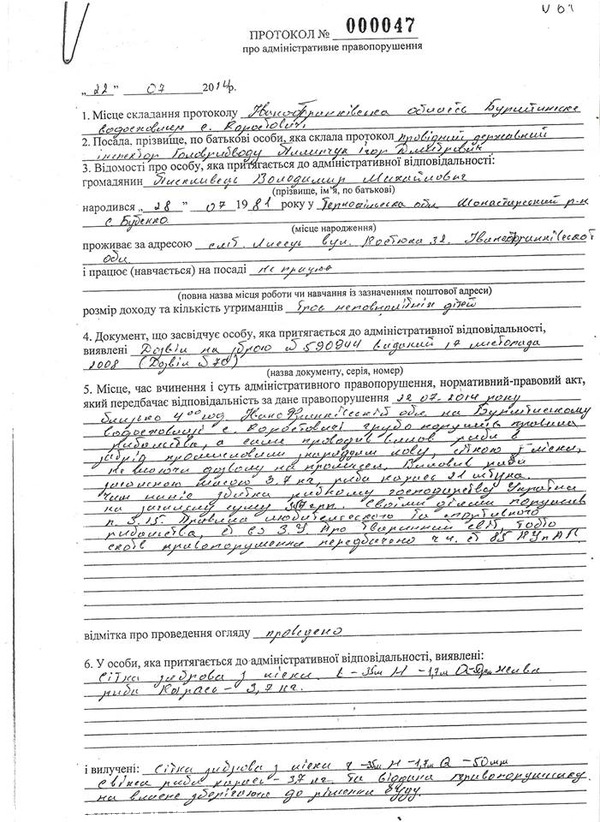 ПРОТОКОЛ № 000047
про адміністративне правопорушення
„22" 07 2014р.
1. Місце складання протоколу Івано-Франківська область Бурштинське
водосховище с. Коростовичі
2. Посада, прізвище, по батькові особи, яка склала протокол провідний державний
інспектор Ігор
3. Відомості про особу, яка притягається до адміністративної відповідальності:
громадянин Володимир Михайлович
(прізвище, ім'я, по батькові)
народився „28" 07 1981 року у Тернопільська обл. Монастирський р-н
с.
(місце народження)
проживає за адресою смт. Лисець вул. 32. Івано-Франківської
обл.
і працює (навчається) на посаді не працює
(повна назва місця роботи чи навчання із зазначенням поштової адреси)
розмір доходу та кількість утриманців троє неповнолітніх дітей
4. Документ, що засвідчує особу, яка притягається до адміністративної відповідальності,
виявлені Дозвіл на зброю № 590944 виданий 17 листопада
2008 (Дозвіл № 70)
(назва документу, серія, номер)
5. Місце, час вчинення і суть адміністративного правопорушення, нормативний-правовий акт,
який передбачає відповідальність за дане правопорушення 22.07.2014 року
близько 4⁰⁰ год Івано-Франківській обл. на Бурштинському
водосховищі с. Коростовичі грубо порушив правила
рибальства, а саме проводив вилов риби
забрід промисловим знаряддям лову, сіткою з ліски,
не маючи дозволу на промисел. Виловив риби
загальною масою 3,7 кг, риба карась 21 штука.
Чим наніс збитки рибному господарству України
на загальну суму 357 грн. Своїми діями порушив
п. 3.15. Правила любительського та спортивного
рибальства, З.У. Про тваринний світ, тобто
скоїв правопорушення передбачене ч.4. ст 85 КУпАП
відмітка про проведення огляду проведено
6. У особи, яка притягається до адміністративної відповідальності, виявлені:
Сітка зяброва з ліски L - 35м H - 1,7м
риба карась - 3,7 кг.
і вилучені: Сітка зяброва з ліски - 35м H - 1,7м - 50мм
Свіжа риба карась - 3,7 кг. та віддана правопорушнику
на власне зберігання до рішення суду.